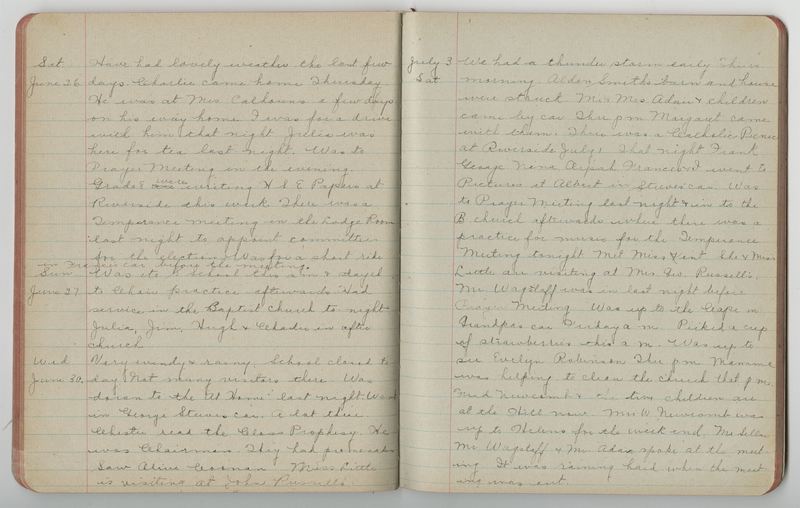 Sat Have had lovely weather the last few
June 26 days. Charlie came home Thursday
He was at Mrs Calhouns a few days
on his way home. I was for a drive
with him that night. Julia was
here for tea last night. Was to
Prayer Meeting in the evening.
Grade 8 were writing H S E Papers at
Riverside this week. There was a
Temperance meeting in the Lodge Room
last night to appoint committees
for the election. Was for a short ride
in car before the meeting.
Sun Was to S School this a m & stayed
June 27 to Choir practice afterwards. Had
service in the Baptist church to-night
Julia, Jim, Hugh & Charlie in after
church
Wed Very windy & rainy. School closed to-
June 30. day. Not many visitors there. Was
down to the "At Home" last night. Went
in George Steeves car. A lot there.
Chester read the Class Prophesy. He
was Chairman. They had
Saw Alice Coonan. Miss Little
is visiting at John Russell's.
July 3 We had a thunder storm early this
Sat morning. Alden Smiths barn and house
were struck. Mr & Mrs Adair & children
came by car Thur pm. Margaret came
with them. There was a Catholic Picnic
at Riverside July 1. That night Frank
George Nena Francis & I went to
Pictures at Albert in Steeves car. Was
to Prayer Meeting last night & in to the
B church afterwards where there was a
practice for music for the Temperance
Meeting tonight. Met Miss Kent. She & Miss
Little are visiting at Mrs. Geo. Russell's.
Mr Wagstaff was in last night before
Prayer Meeting. Was up to the Cape in
Grandpas car Friday a m. Picked a cup
of strawberries this a m. Was up to
see Evelyn Robinson Thur pm. Mamma
was helping to clean the church that p m.
Fred Newcomb & the two children are
at the Hill now. Mrs W. Newcomb was
up to Helens for the week end.
Mr Wagstaff & Mr Adair spoke at the meet-
ing. It was raining hard when the meet-
ing was out.